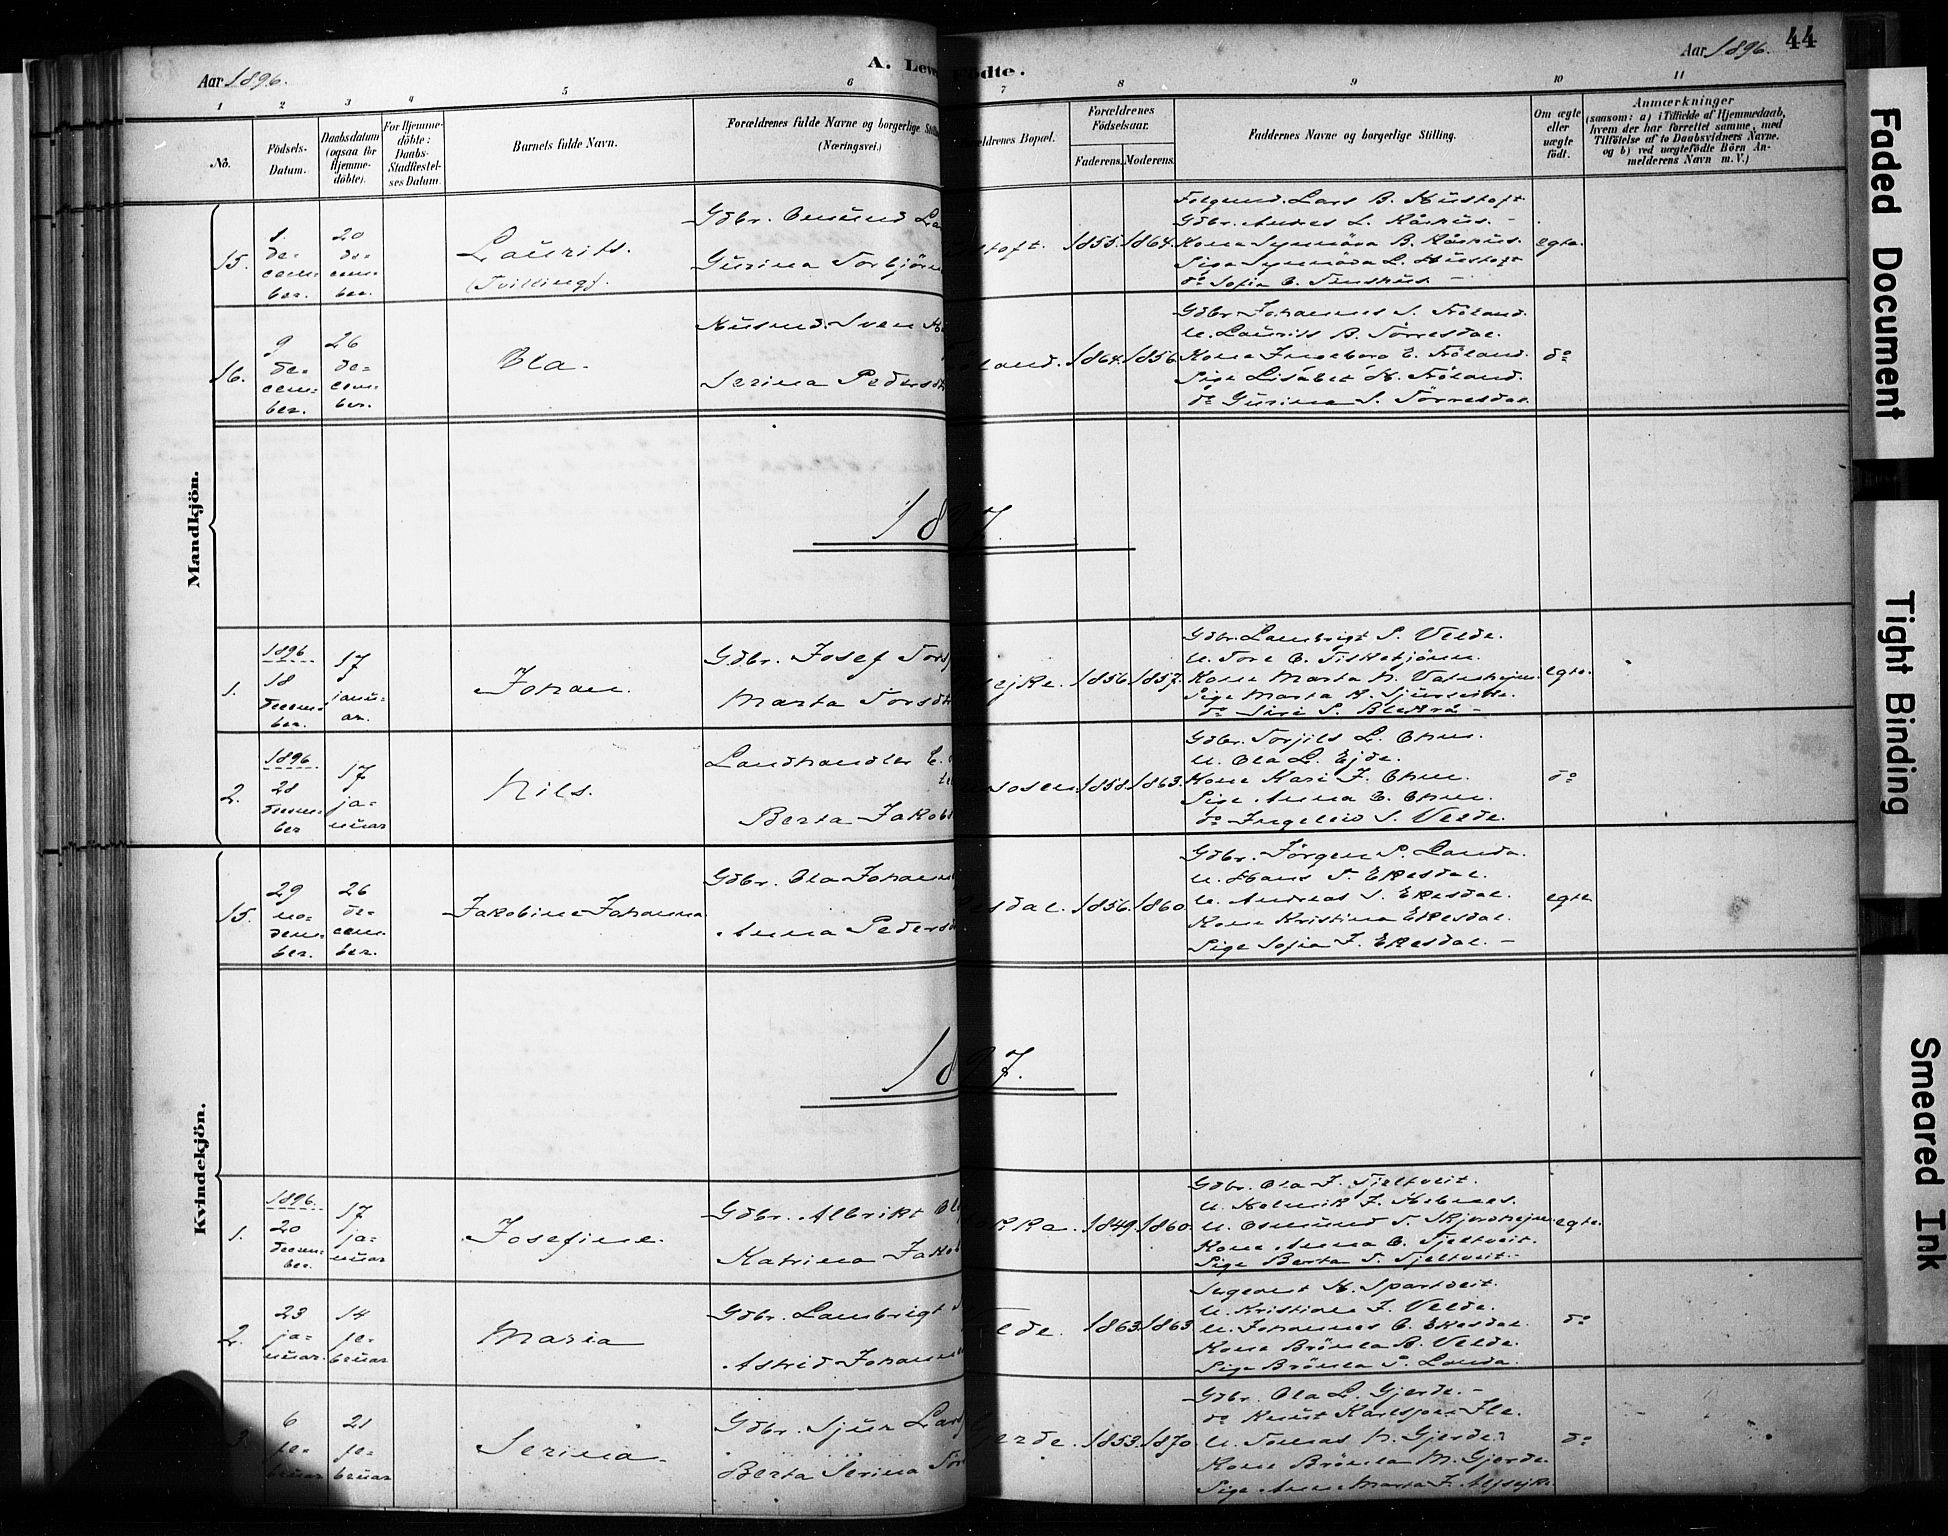 Aar 1896.
A. Leve
Födte.
Aar 1896. 44
1 2 3 4 5 6 7 8 9 10 11
No.
Födsels-
Datum.
Daabsdatum
(ogsaa for
Hjemme-
döbte).
For Hjemme-
döbte:
Daabs-
Stadfæstel-
ses Datum.
Barnets fulde Navn.
Forældrenes fulde Navne og borgerlige Stilling
(Næringsvei.)
ældrenes Bopæl.
Forældrenes
Födselsaar.
Faderens. Moderens.
Faddernes Navne og borgerlige Stilling.
Om ægte
eller
uægte
født.
Anmærkninger
(saasom: a) i Tilfælde af Hjemmedaab,
hvem der har forrettet samme, med
Tilföielse af to Daabsvidners Navne.
og b) ved uægtefödte Börn An-
melderens Navn m.V.)
Mandkjön.
15.
1.
de-
cem-
ber.
20
de-
cem-
ber.
Laurits.
(Tvilling).
Gdbr. Omund La
Gurina Torbjörn
stoft. 1855. 1864.
Lars B. Hustoft
Gdbr. Andres L. Råshus.
Kone Synnöva B. Råshus.
Pige Synnöva L. Hustoft
do Sofia
egte.
16.
9
de-
cem-
ber.
26
de-
cem-
ber.
Ola.
Husmd. Sven
Serina Pedersdt
öland. 1864. 1856
Gdbr. Johannes S. Fröland.
U. Laurits A. Törresdal.
Kone Ingeborg E. Fröland.
Pige Lisabet H. Fröland.
do Gurina S. Törresdal.
do
1897.
1.
1896.
18
decem-
ber.
17
janu-
ar.
Johan.
Gdbr. Josef Tors
Marta Torsdt
ejke. 1856. 1857.
Gdbr. Lambrigt S. Velde.
U. Tore
Kone Marta N.
Pige Marta
do Siri S.
egte.
2.
1896.
28
decem-
ber
17
ja-
nuar
Nils.
Landhandler E.
Berta Jakobs
osen. 1858. 1863.
Gdbr. Torjils L.
U. Ola L. Ejde.
Kone Kari J.
Pige Anna E.
do Ingeleiv S. Velde.
do
Kvindekjön.
15.
29
no-
vem-
ber.
26
de-
cem-
ber.
Jakobine Johanna
Gdbr. Ola Johann
Anna Pedersd
esdal. 1856. 1860.
Gdbr. Jörgen P. Landa.
U. Hans T. Ekesdal.
U. Andreas S. Ekesdal.
Kone Kristina Ekesdal.
Pige Sofia J. Ekesdal.
egte
1897.
1.
1896.
20
decem-
ber.
17
ja-
nuar
Josefine.
Gdbr. Albrikt Ol
Katrina Jakob
kka. 1849. 1860.
Gdbr. Ola J. Tjeltveit.
U. Kolnik J.
U. Osmund T.
Kone Anna O. Tjeltveit.
Pige Berta T. Tjeltveit.
egte.
2.
23
ja-
nuar.
14
fe-
bruar
Maria
Gdbr. Lambrigt
Astrid Johann
Velde. 1863. 1863
H. Spartveit.
U. Kristian J. Velde.
U. Johannes O. Ekesdal.
Kone Brönla B. Velde.
Pige Brönla P. Landa.
do
3.
6
fe-
bruar
21
fe-
bruar
Serina.
Gdbr. Sjur Lars
Berta Serina Tor
Gjerde. 1853. 1870.
Gdbr. Ola L. Gjerde.
do Knut Karlsson Ile.
U. Tomas N. Gjerde.
Kone Brönla M. Gjerde.
Pige Anne Marta J.
do
Faded Document
Tight Binding
Smeared Ink